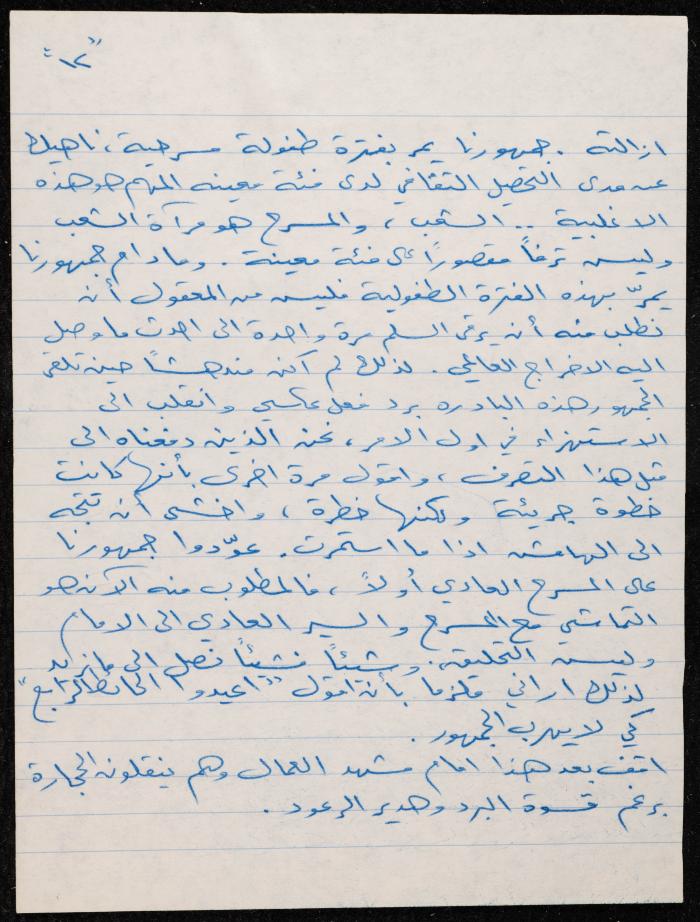 "١٢"
ازالته . جمهورنا يمر بفترة طفولة مسرحية ، ناهيك
عن مدى التحصيل الثقافي لدى فئة معينه المهم هو هذه
الاغلبية .. الشعب ، والمسرح هو مرآة الشعب
وليس ترفاً مقصوراً على فئة معينة . وما دام جمهورنا
يمرّ بهذه الفترة الطفولية فليس من المعقول أن
نطلب منه أن يرقى السلم مرة واحدة الى احدث ما وصل
اليه الاخراج العالمي . لذلك لم اكن مندهشاً حين تلقى
الجمهور هذه البادره برد فعل عكسي وانقلب الى
الاستهزاء في اول الامر ، نحن الذين دفعناه الى
مثل هذا التصرف ، واقول مرة اخرى بأنها كانت
خطوة جريئة ولكنها خطرة ، واخشى أن تتجه
الى الهامش اذا ما استمرت . عوّدوا جمهورنا
على المسرح العادي أولاً ، فالمطلوب منه الآن هو
التماشي مع المسرح والسير العادي الى الامام
وليس التحليق . وشيئاً فشيئاً نصل الى ما نريد
لذلك اراني ملزما بأن اقول "اعيدوا الحائط الرابع"
كي لا يهرب الجمهور .
اقف بعد هذا امام مشهد العمال وهم ينقلون الحجارة
برغم قسوة البرد وهدير الرعود .